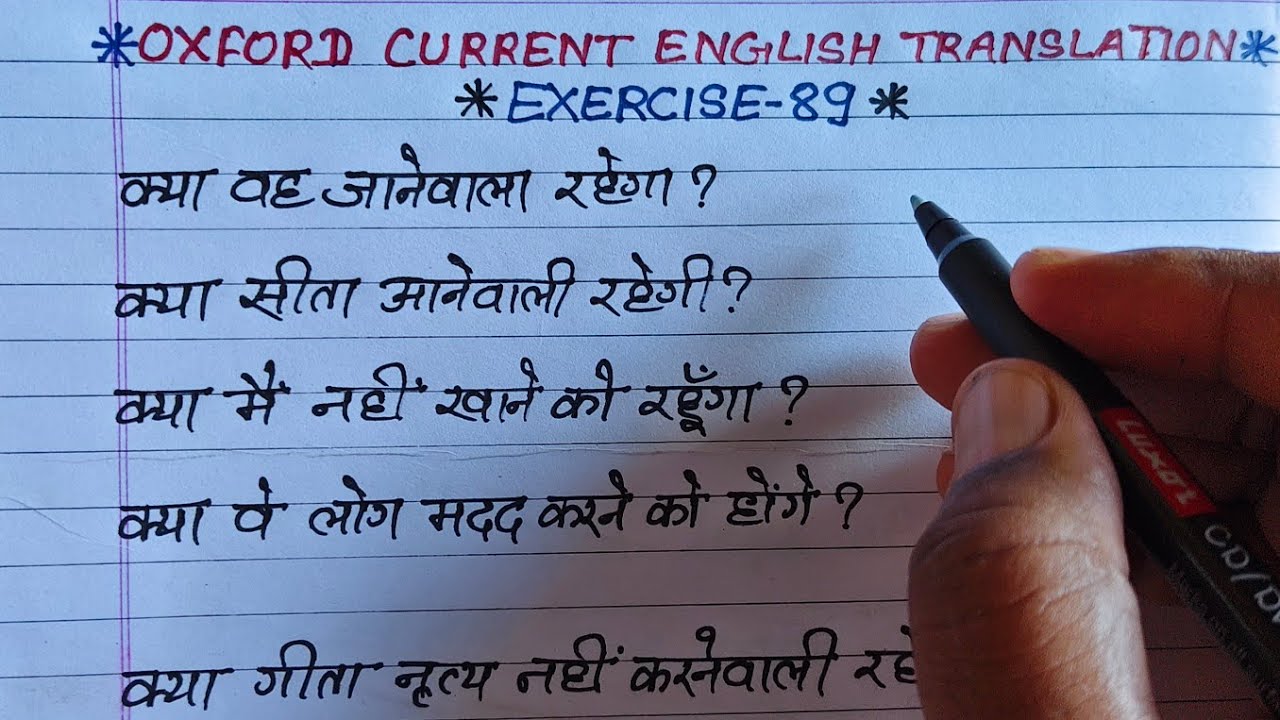 *OXFORD CURRENT ENGLISH TRANSLATION*
*EXERCISE-89*
क्या वह जानेवाला रहेगा?
क्या सीता आनेवाली रहेगी?
क्या मैं नहीं खाने को रहूँगा?
क्या वे लोग मदद करने को होंगे?
क्या गीता नृत्य नहीं करनेवाली
LUXOR